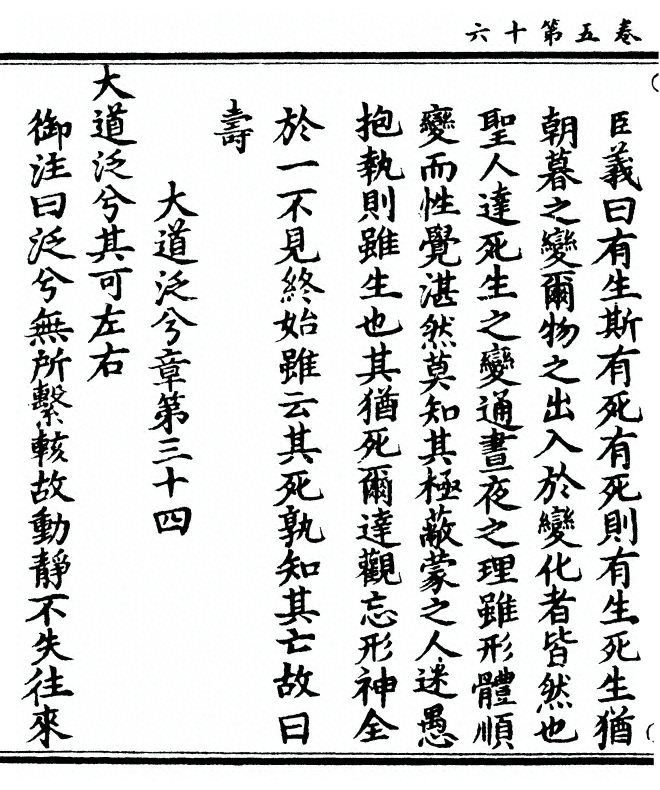 卷五第十六
臣義曰有生斯有死有死則有生死生猶
朝暮之變爾物之出入於變化者皆然也
聖人達死生之變通晝夜之理雖形體順
變而性覺湛然莫知其極蔽蒙之人迷愚
抱執則雖生也其猶死爾達觀忘形神全
於一不見終始雖云其死孰知其亡故曰
壽
大道泛兮章第三十四
大道泛兮其可左右
御注曰泛兮無所繫輆故動靜不失往來